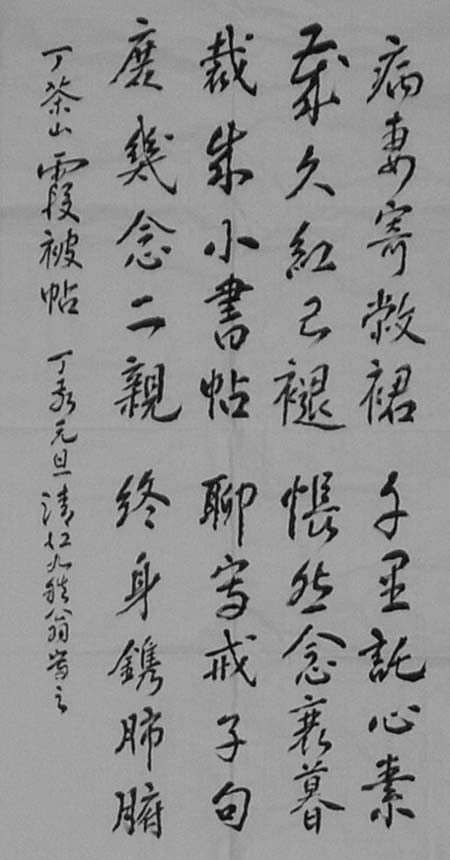 病妻寄敝裙 千里託心素
歲久紅已褪 悵然念衰暮
裁成小書帖 聊寫戒子句
庶幾念二親 終身鐫肺腑
丁茶山霞被帖 丁亥元旦 清 九秩翁 之